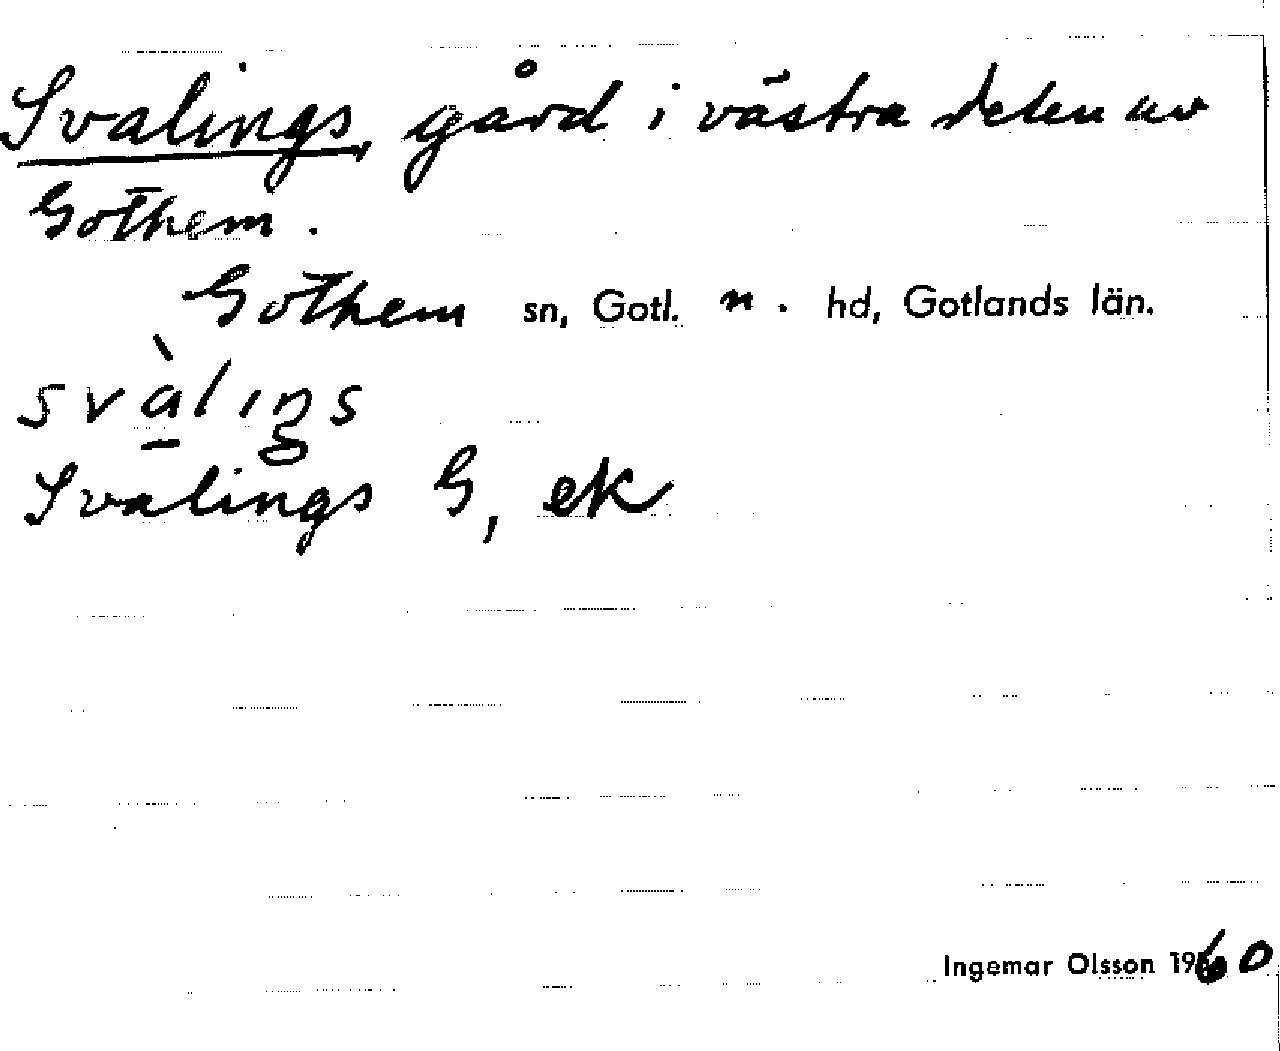 Svalings, gård i västra delen av
Gothem.
Gothem sn, Gotl. n. hd, Gotlands län.
svà̱lıŋs
Svalings G, ek
Ingemar Olsson 1960